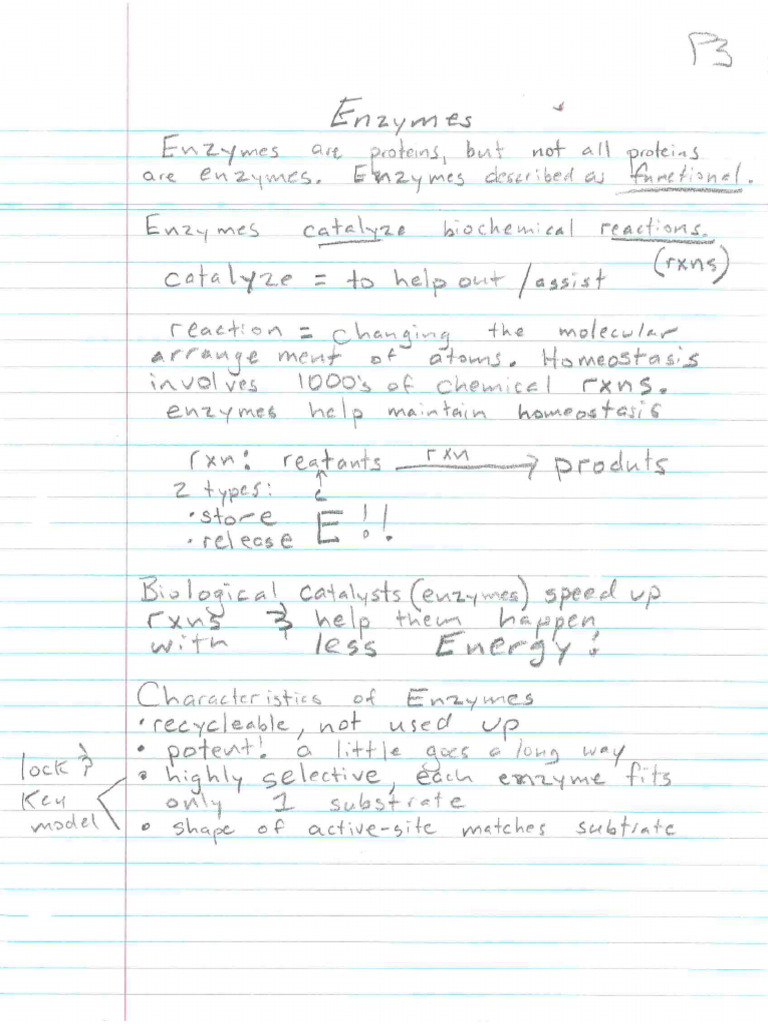 P3
Enzymes
Enzymes are proteins, but not all proteins
are enzymes. Enzymes described as functional.
Enzymes catalyze biochemical reactions.
(rxns)
catalyze = to help out / assist
reaction = changing the molecular
arrangement of atoms. Homeostasis
involves 1000's of chemical rxns.
enzymes help maintain homeostasis
rxn: reatants rxn → produts
2 types: c
• store E!!
• release
Biological catalysts (enzymes) speed up
rxns & help them happen
with less Energy!
Characteristics of Enzymes
• recycleable, not used up
• potent! a little goes a long way
lock & • highly selective, each enzyme fits
Key only 1 substrate
model • shape of active-site matches subtrate